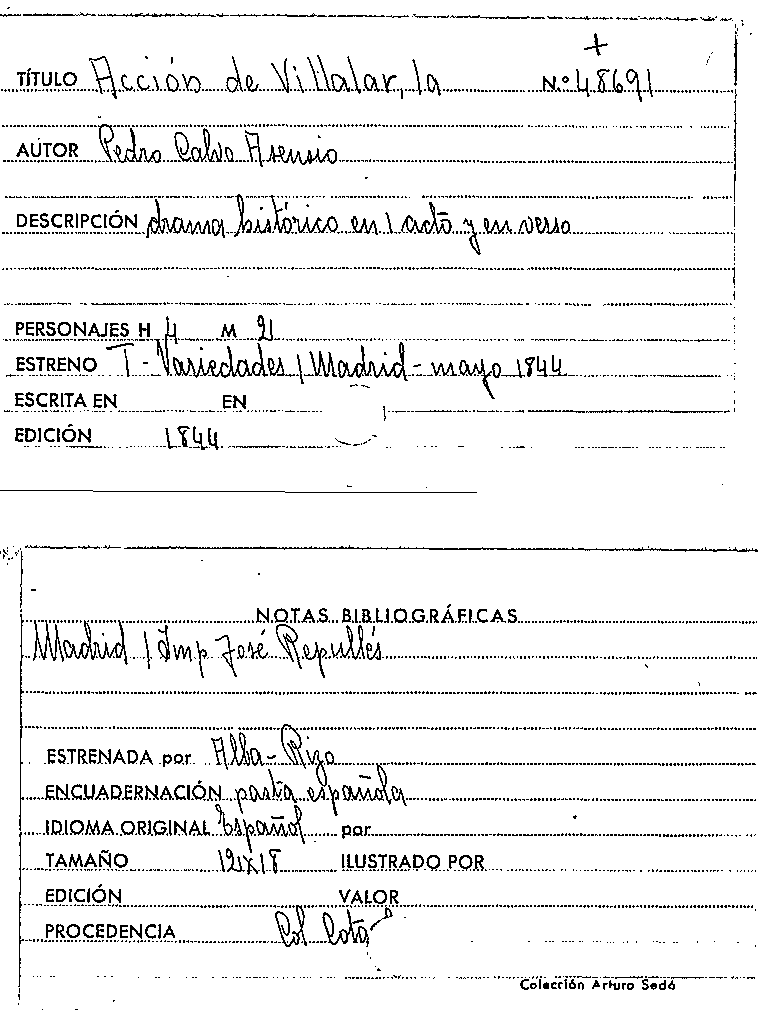 +
TÍTULO Acción de Villalar, la N.º 48691
AUTOR Pedro Calvo Asensio
DESCRIPCIÓN drama histórico en 1 acto y en verso
PERSONAJES H 4 M 2
ESTRENO T - Variedades / Madrid - mayo 1844
ESCRITA EN EN
EDICIÓN 1844
NOTAS BIBLIOGRÁFICAS
Madrid / Imp José Repullés
ESTRENADA por Alba - Rizo
ENCUADERNACIÓN pasta española
IDIOMA ORIGINAL Español por
TAMAÑO 12x18 ILUSTRADO POR
EDICIÓN VALOR
PROCEDENCIA Col Cota
Colección Arturo Sedó